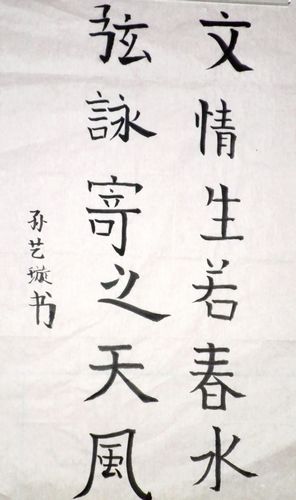 文情生若春水
弦詠寄之天風
孙艺璇书